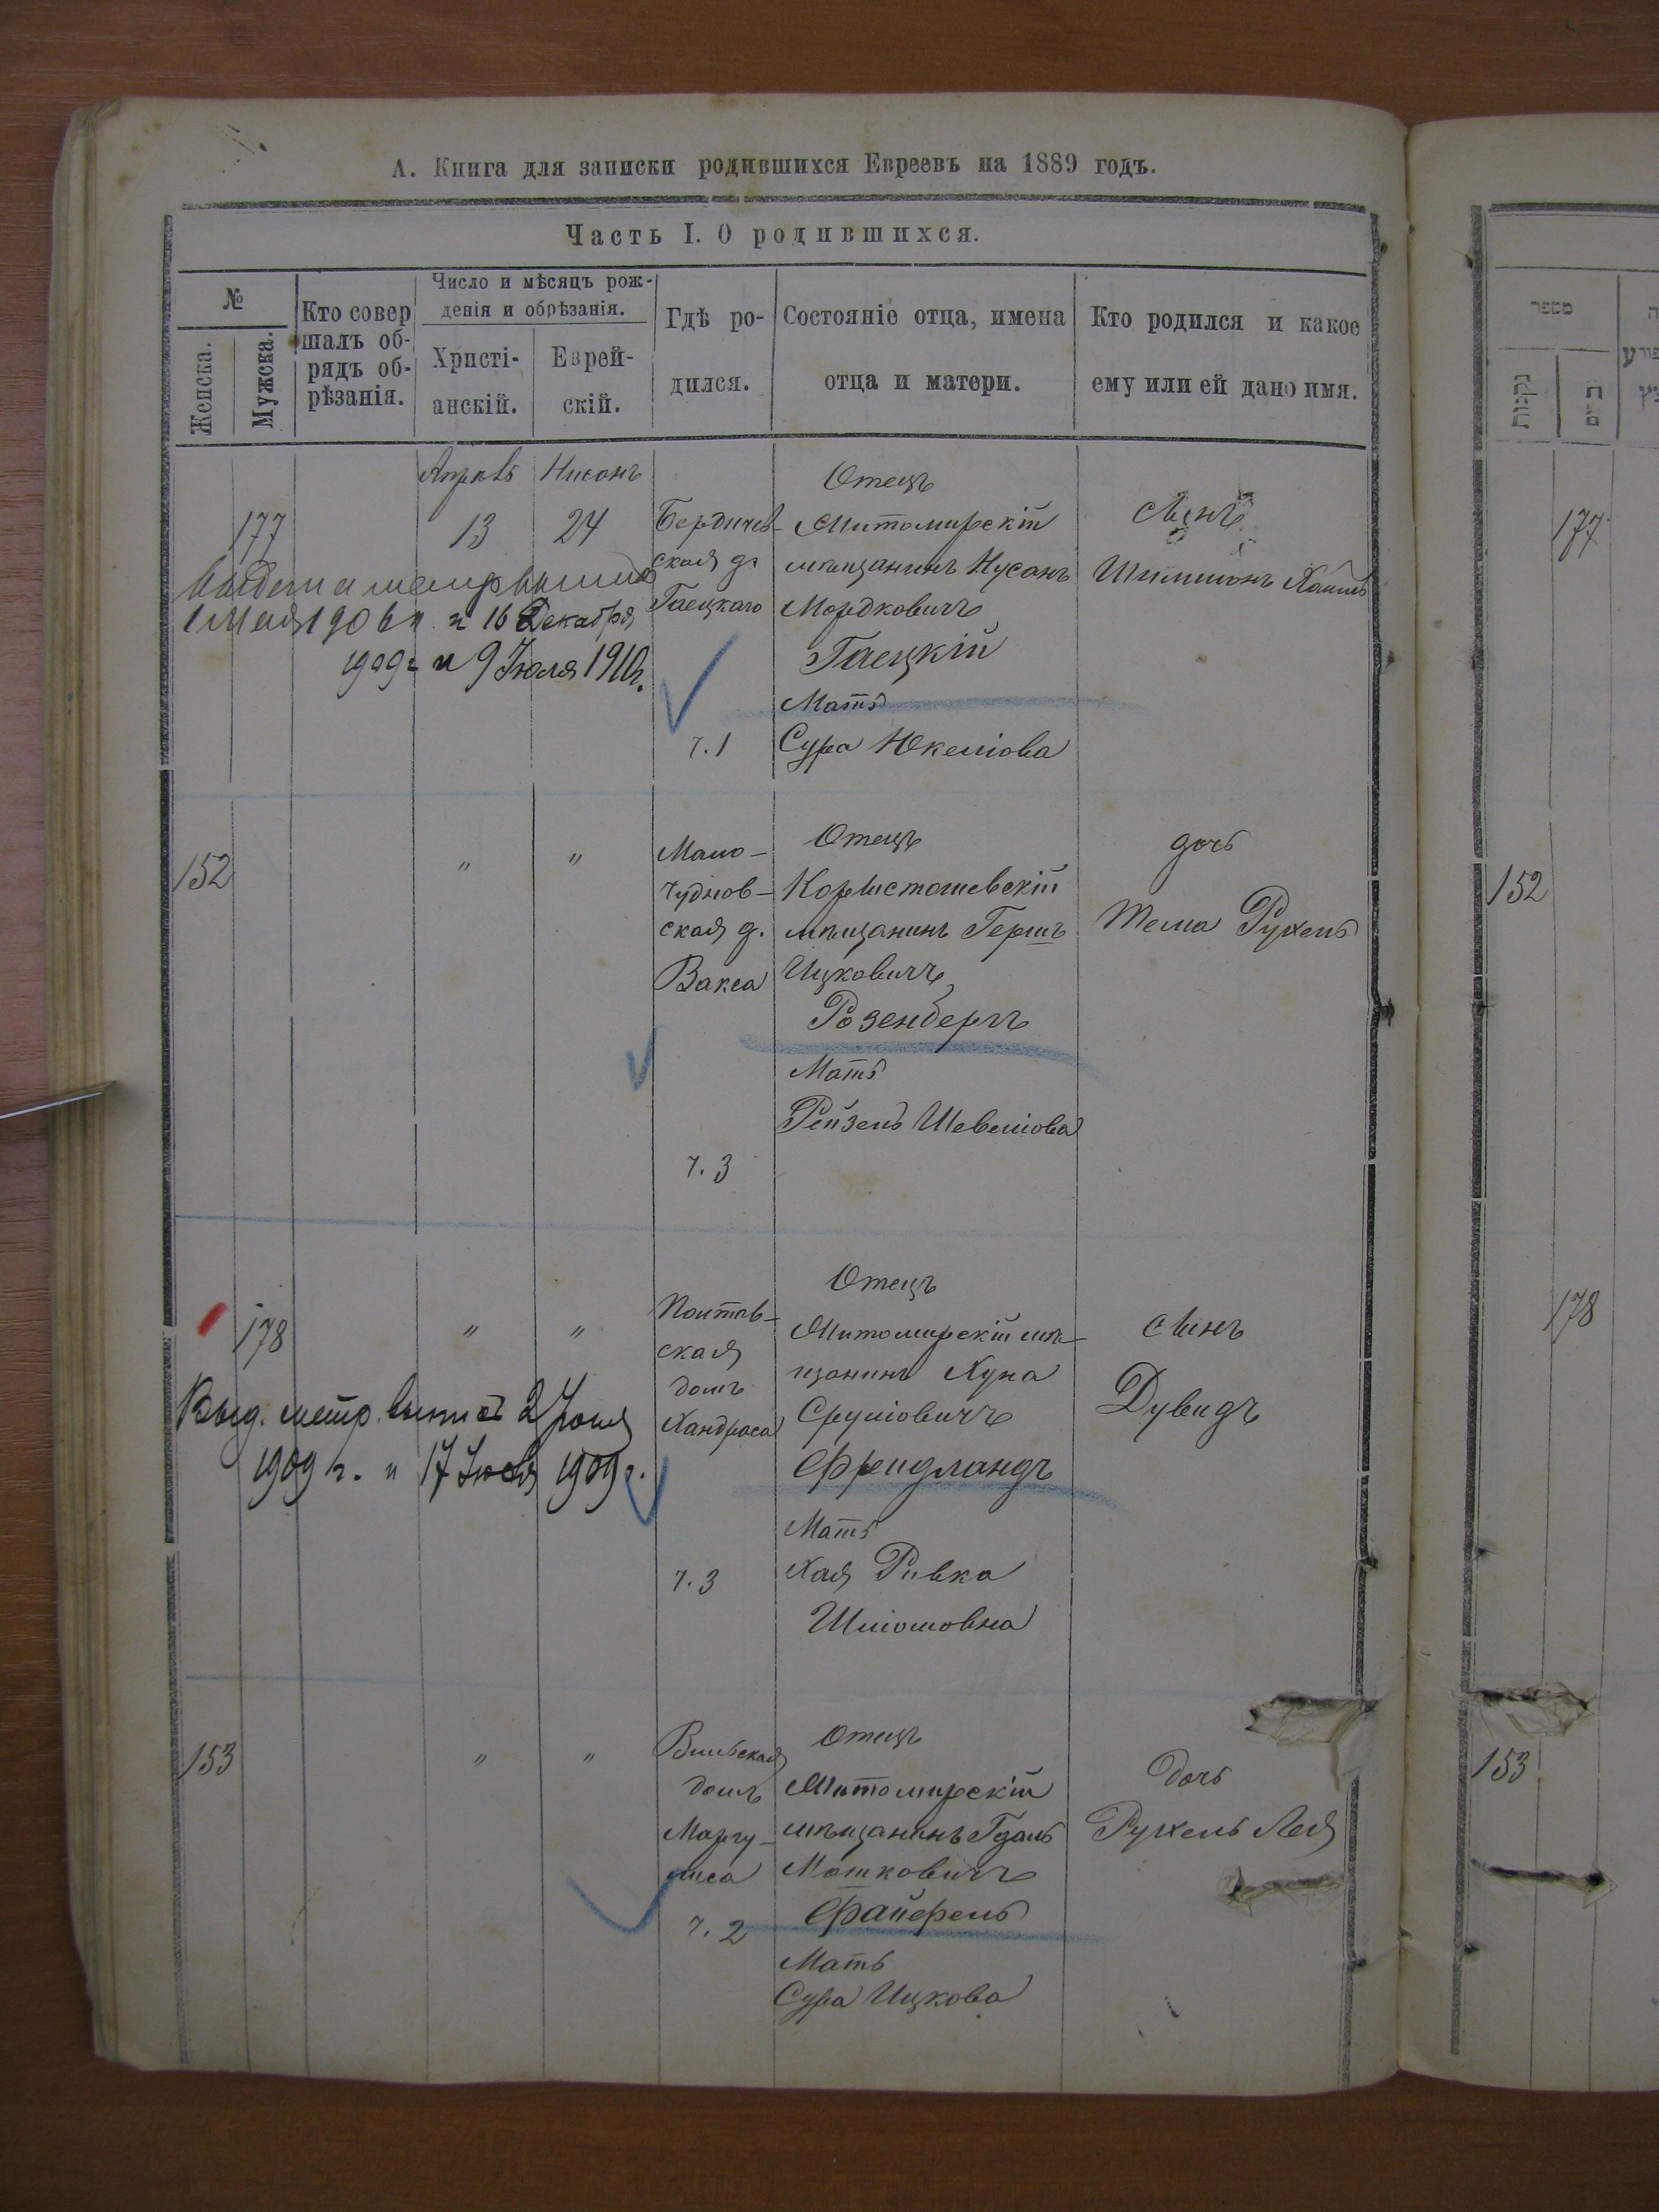 А. Книга для записки родившихся Евреевъ на 1889 годъ.
Часть I. О родившихся.
№
Женска.
Мужска.
Кто совер
шалъ об-
рядъ об-
рѣзанія.
Число и мѣсяцъ рож-
денія и обрѣзанія.
Христі-
анскій.
Еврей-
скій.
Гдѣ ро-
дился.
Состояніе отца, имена
отца и матери.
Кто родился и какое
ему или ей дано имя.
Апрѣль
Нисонъ
177
13
24
Бердичев-
ская д.
Гаецкаго
ч. 1
Отецъ
Житомирскій
мѣщанинъ Нусанъ
Мордковичъ
Гаецкій
Мать
Сура Юкелiова
Сынъ
Шимшонъ Хаимъ
1 Мая 1906 г и 16 Декабря
1909 г и 9 Июля 1910 г.
152
"
"
Мало-
чуднов-
ская д.
Вакса
ч. 3
Отецъ
Користошевскій
мѣщанинъ Гершъ
Ицковичъ
Розенбергъ
Мать
Рейзель Шевелiова
дочь
Тема Рухель
178
"
"
Полтав-
ская
домъ
Хандроса
ч. 3
Отецъ
Житомирскій мѣ-
щанинъ Хуна
Срулiовичъ
Фридландъ
Мать
Хая Ривка
Шлiомовна
сынъ
Дувидъ
Выд. метр. выпись 2 Июля
1909 г. и 17 Июля 1909 г.
153
"
"
Вильская
домъ
Маргу-
лиса
ч. 2
Отецъ
Житомирскій
мѣщанинъ Гдаль
Мошковичъ
Файфель
Мать
Сура Ицкова
дочь
Рухель Лея
מספר
נקבות
177
152
178
153